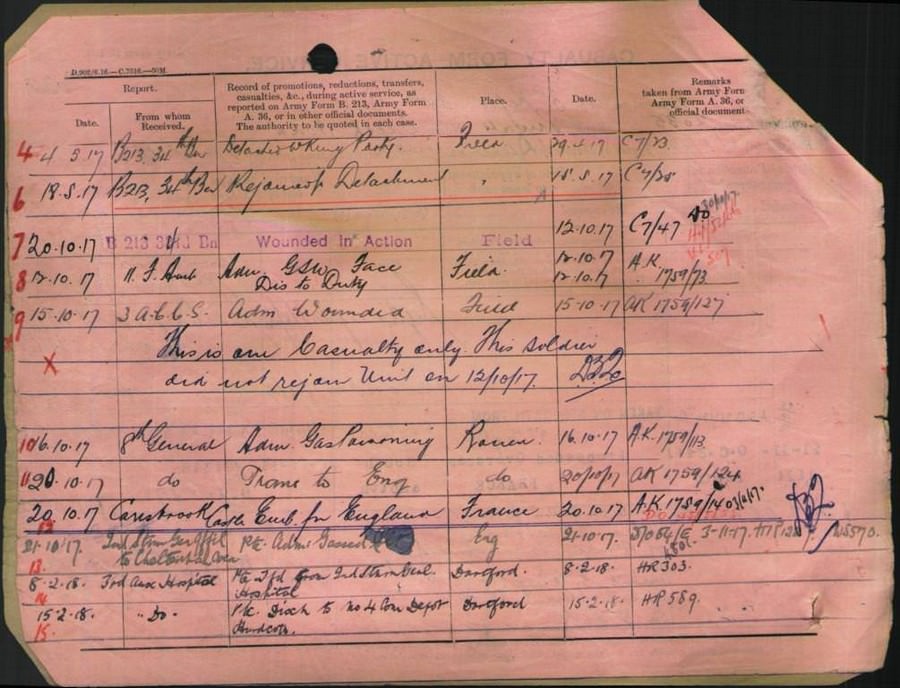 D.902/6.16.—C.7516.—50M.
Report.
Record of promotions, reductions, transfers,
casualties, &c., during active service, as
reported on Army Form B. 213, Army Form
A. 36, or in other official documents.
The authority to be quoted in each case.
Place.
Date.
Remarks
taken from Army Form
Army Form A. 36, or
official document
Date.
From whom
Received.
4 4 5.17 B213, 34th Bn Detached Party. Field 29.4.17 C7/23
6 18.5.17 B213, 34th Bn Rejoined Detachment " C7/35
7 20.10.17 B 213 Bn Wounded In Action Field 12.10.17 C7/47
8 12.10.17 Amb Adm GSW Face Field. 12.10.17 A.K.
Dis to Duty 12.10.17 1759/73
9 15.10.17 3 A.C.C.S. Adm Wounded Field 15.10.17 AK 1759/127
X This is one Casualty only. This soldier
did not rejoin Unit on 12/10/17.
10 16.10.17 8th General Adm. Gas Poisoning Rouen. 16.10.17 A.K. 1759/113
11 20.10.17 do Trans to Eng do 20/10/17 AK 1759/124
20.10.17 Carisbrook Castle Emb. for England France 20.10.17 A.K. 1759/140
21.10.17. 2nd Gen Hptl Adm. Gassed Eng 21.10.17. 3-11-17. W5570.
to Cheltenham
13.
8.2.18. 3rd Aux Hospital Tfd from 2nd Genl. Dartford. 8.2.18. HR 303.
Hospital
14
15.2.18. "Do" Disch to No 4 Com Depot Dartford 15.2.18. HR 589.
Hurdcott.
15.